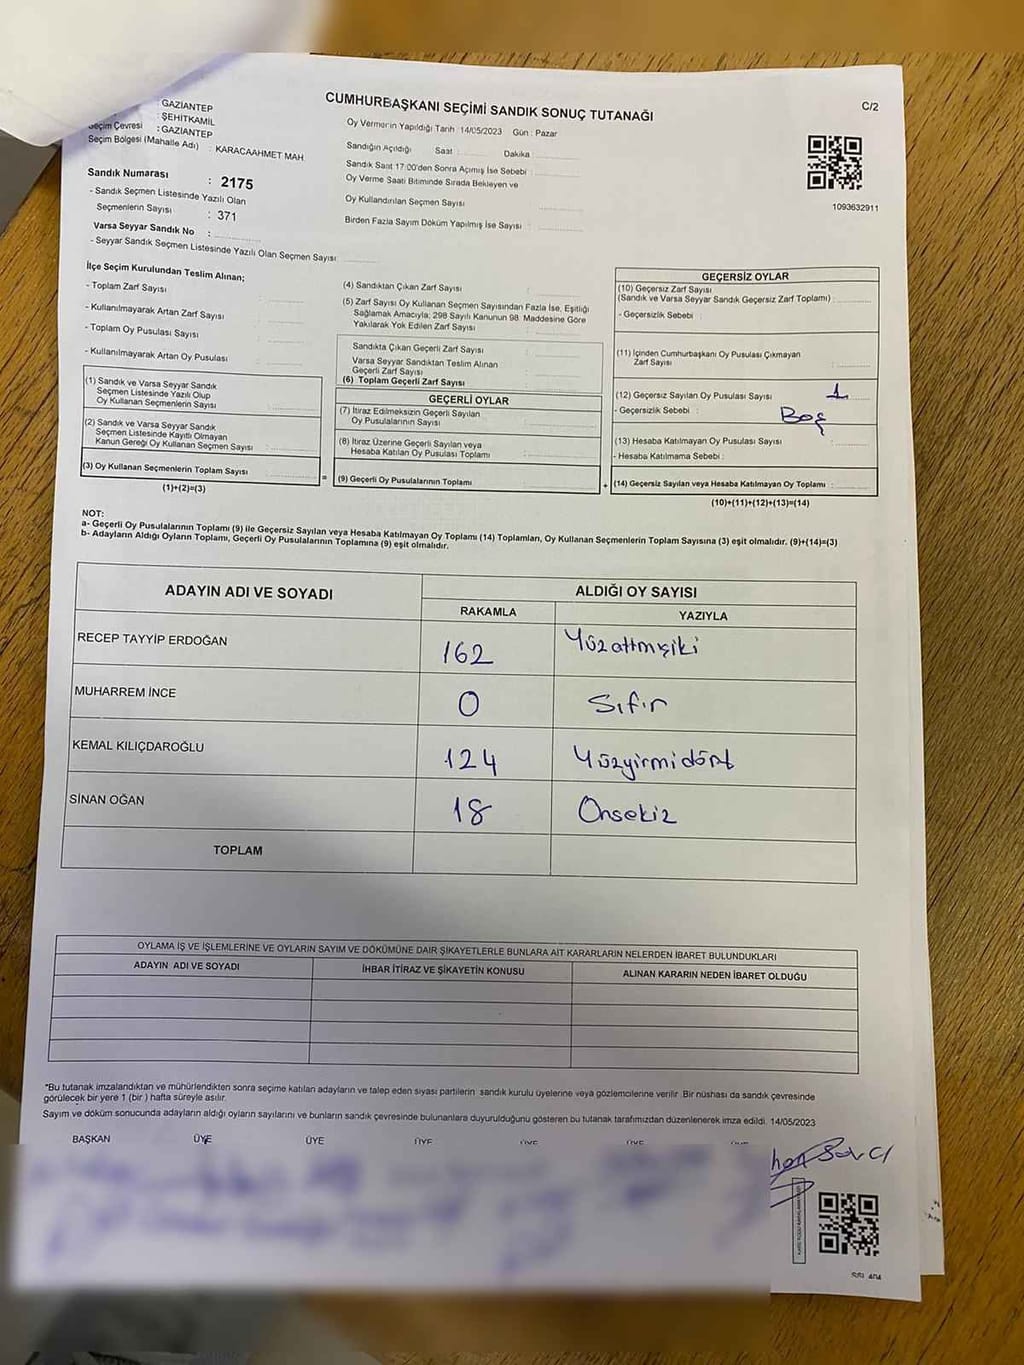 C/2
CUMHURBAŞKANI SEÇİMİ SANDIK SONUÇ TUTANAĞI
: GAZİANTEP
: ŞEHİTKAMİL
Seçim Çevresi : GAZİANTEP
Seçim Bölgesi (Mahalle Adı) : KARACAAHMET MAH.
Sandık Numarası : 2175
- Sandık Seçmen Listesinde Yazılı Olan
Seçmenlerin Sayısı : 371
Varsa Seyyar Sandık No :
- Seyyar Sandık Seçmen Listesinde Yazılı Olan Seçmen Sayısı
Oy Vermenin Yapıldığı Tarih : 14/05/2023 Gün : Pazar
Sandığın Açıldığı Saat : Dakika :
Sandık Saat 17:00'den Sonra Açılmış İse Sebebi :
Oy Verme Saati Bitiminde Sırada Bekleyen ve
Oy Kullandırılan Seçmen Sayısı
Birden Fazla Sayım Döküm Yapılmış İse Sayısı :
1093632911
İlçe Seçim Kurulundan Teslim Alınan;
- Toplam Zarf Sayısı
- Kullanılmayarak Artan Zarf Sayısı
- Toplam Oy Pusulası Sayısı
- Kullanılmayarak Artan Oy Pusulası
(1) Sandık ve Varsa Seyyar Sandık
Seçmen Listesinde Yazılı Olup
Oy Kullanan Seçmenlerin Sayısı
(2) Sandık ve Varsa Seyyar Sandık
Seçmen Listesinde Kayıtlı Olmayan
Kanun Gereği Oy Kullanan Seçmen Sayısı
(3) Oy Kullanan Seçmenlerin Toplam Sayısı
(1)+(2)=(3)
(4) Sandıktan Çıkan Zarf Sayısı
(5) Zarf Sayısı Oy Kullanan Seçmen Sayısından Fazla İse, Eşitliği
Sağlamak Amacıyla; 298 Sayılı Kanunun 98. Maddesine Göre
Yakılarak Yok Edilen Zarf Sayısı
Sandıkta Çıkan Geçerli Zarf Sayısı
Varsa Seyyar Sandıktan Teslim Alınan
Geçerli Zarf Sayısı
(6) Toplam Geçerli Zarf Sayısı
GEÇERLİ OYLAR
(7) İtiraz Edilmeksizin Geçerli Sayılan
Oy Pusulalarının Sayısı
(8) İtiraz Üzerine Geçerli Sayılan veya
Hesaba Katılan Oy Pusulası Toplamı
= (9) Geçerli Oy Pusulalarının Toplamı
GEÇERSİZ OYLAR
(10) Geçersiz Zarf Sayısı
(Sandık ve Varsa Seyyar Sandık Geçersiz Zarf Toplamı)
- Geçersizlik Sebebi :
(11) İçinden Cumhurbaşkanı Oy Pusulası Çıkmayan
Zarf Sayısı
(12) Geçersiz Sayılan Oy Pusulası Sayısı : 1
- Geçersizlik Sebebi : Boş
(13) Hesaba Katılmayan Oy Pusulası Sayısı
- Hesaba Katılmama Sebebi :
+ (14) Geçersiz Sayılan veya Hesaba Katılmayan Oy Toplamı :
(10)+(11)+(12)+(13)=(14)
NOT:
a- Geçerli Oy Pusulalarının Toplamı (9) ile Geçersiz Sayılan veya Hesaba Katılmayan Oy Toplamı (14) Toplamları, Oy Kullanan Seçmenlerin Toplam Sayısına (3) eşit olmalıdır. (9)+(14)=(3)
b- Adayların Aldığı Oyların Toplamı, Geçerli Oy Pusulalarının Toplamına (9) eşit olmalıdır.
ADAYIN ADI VE SOYADI ALDIĞI OY SAYISI
RAKAMLA YAZIYLA
RECEP TAYYİP ERDOĞAN 162 Yüzattmışiki
MUHARREM İNCE 0 Sıfır
KEMAL KILIÇDAROĞLU 124 Yüzyirmidört
SİNAN OĞAN 18 Onsekiz
TOPLAM
OYLAMA İŞ VE İŞLEMLERİNE VE OYLARIN SAYIM VE DÖKÜMÜNE DAİR ŞİKAYETLERLE BUNLARA AİT KARARLARIN NELERDEN İBARET BULUNDUKLARI
ADAYIN ADI VE SOYADI İHBAR İTİRAZ VE ŞİKAYETİN KONUSU ALINAN KARARIN NEDEN İBARET OLDUĞU
*Bu tutanak imzalandıktan ve mühürlendikten sonra seçime katılan adayların ve talep eden siyasi partilerin sandık kurulu üyelerine veya gözlemcilerine verilir. Bir nüshası da sandık çevresinde
görülecek bir yere 1 (bir) hafta süreyle asılır.
Sayım ve döküm sonucunda adayların aldığı oyların sayılarını ve bunların sandık çevresinde bulunanlara duyurulduğunu gösteren bu tutanak tarafımızdan düzenlenerek imza edildi. 14/05/2023
BAŞKAN ÜYE ÜYE ÜYE ÜYE ÜYE ÜYE